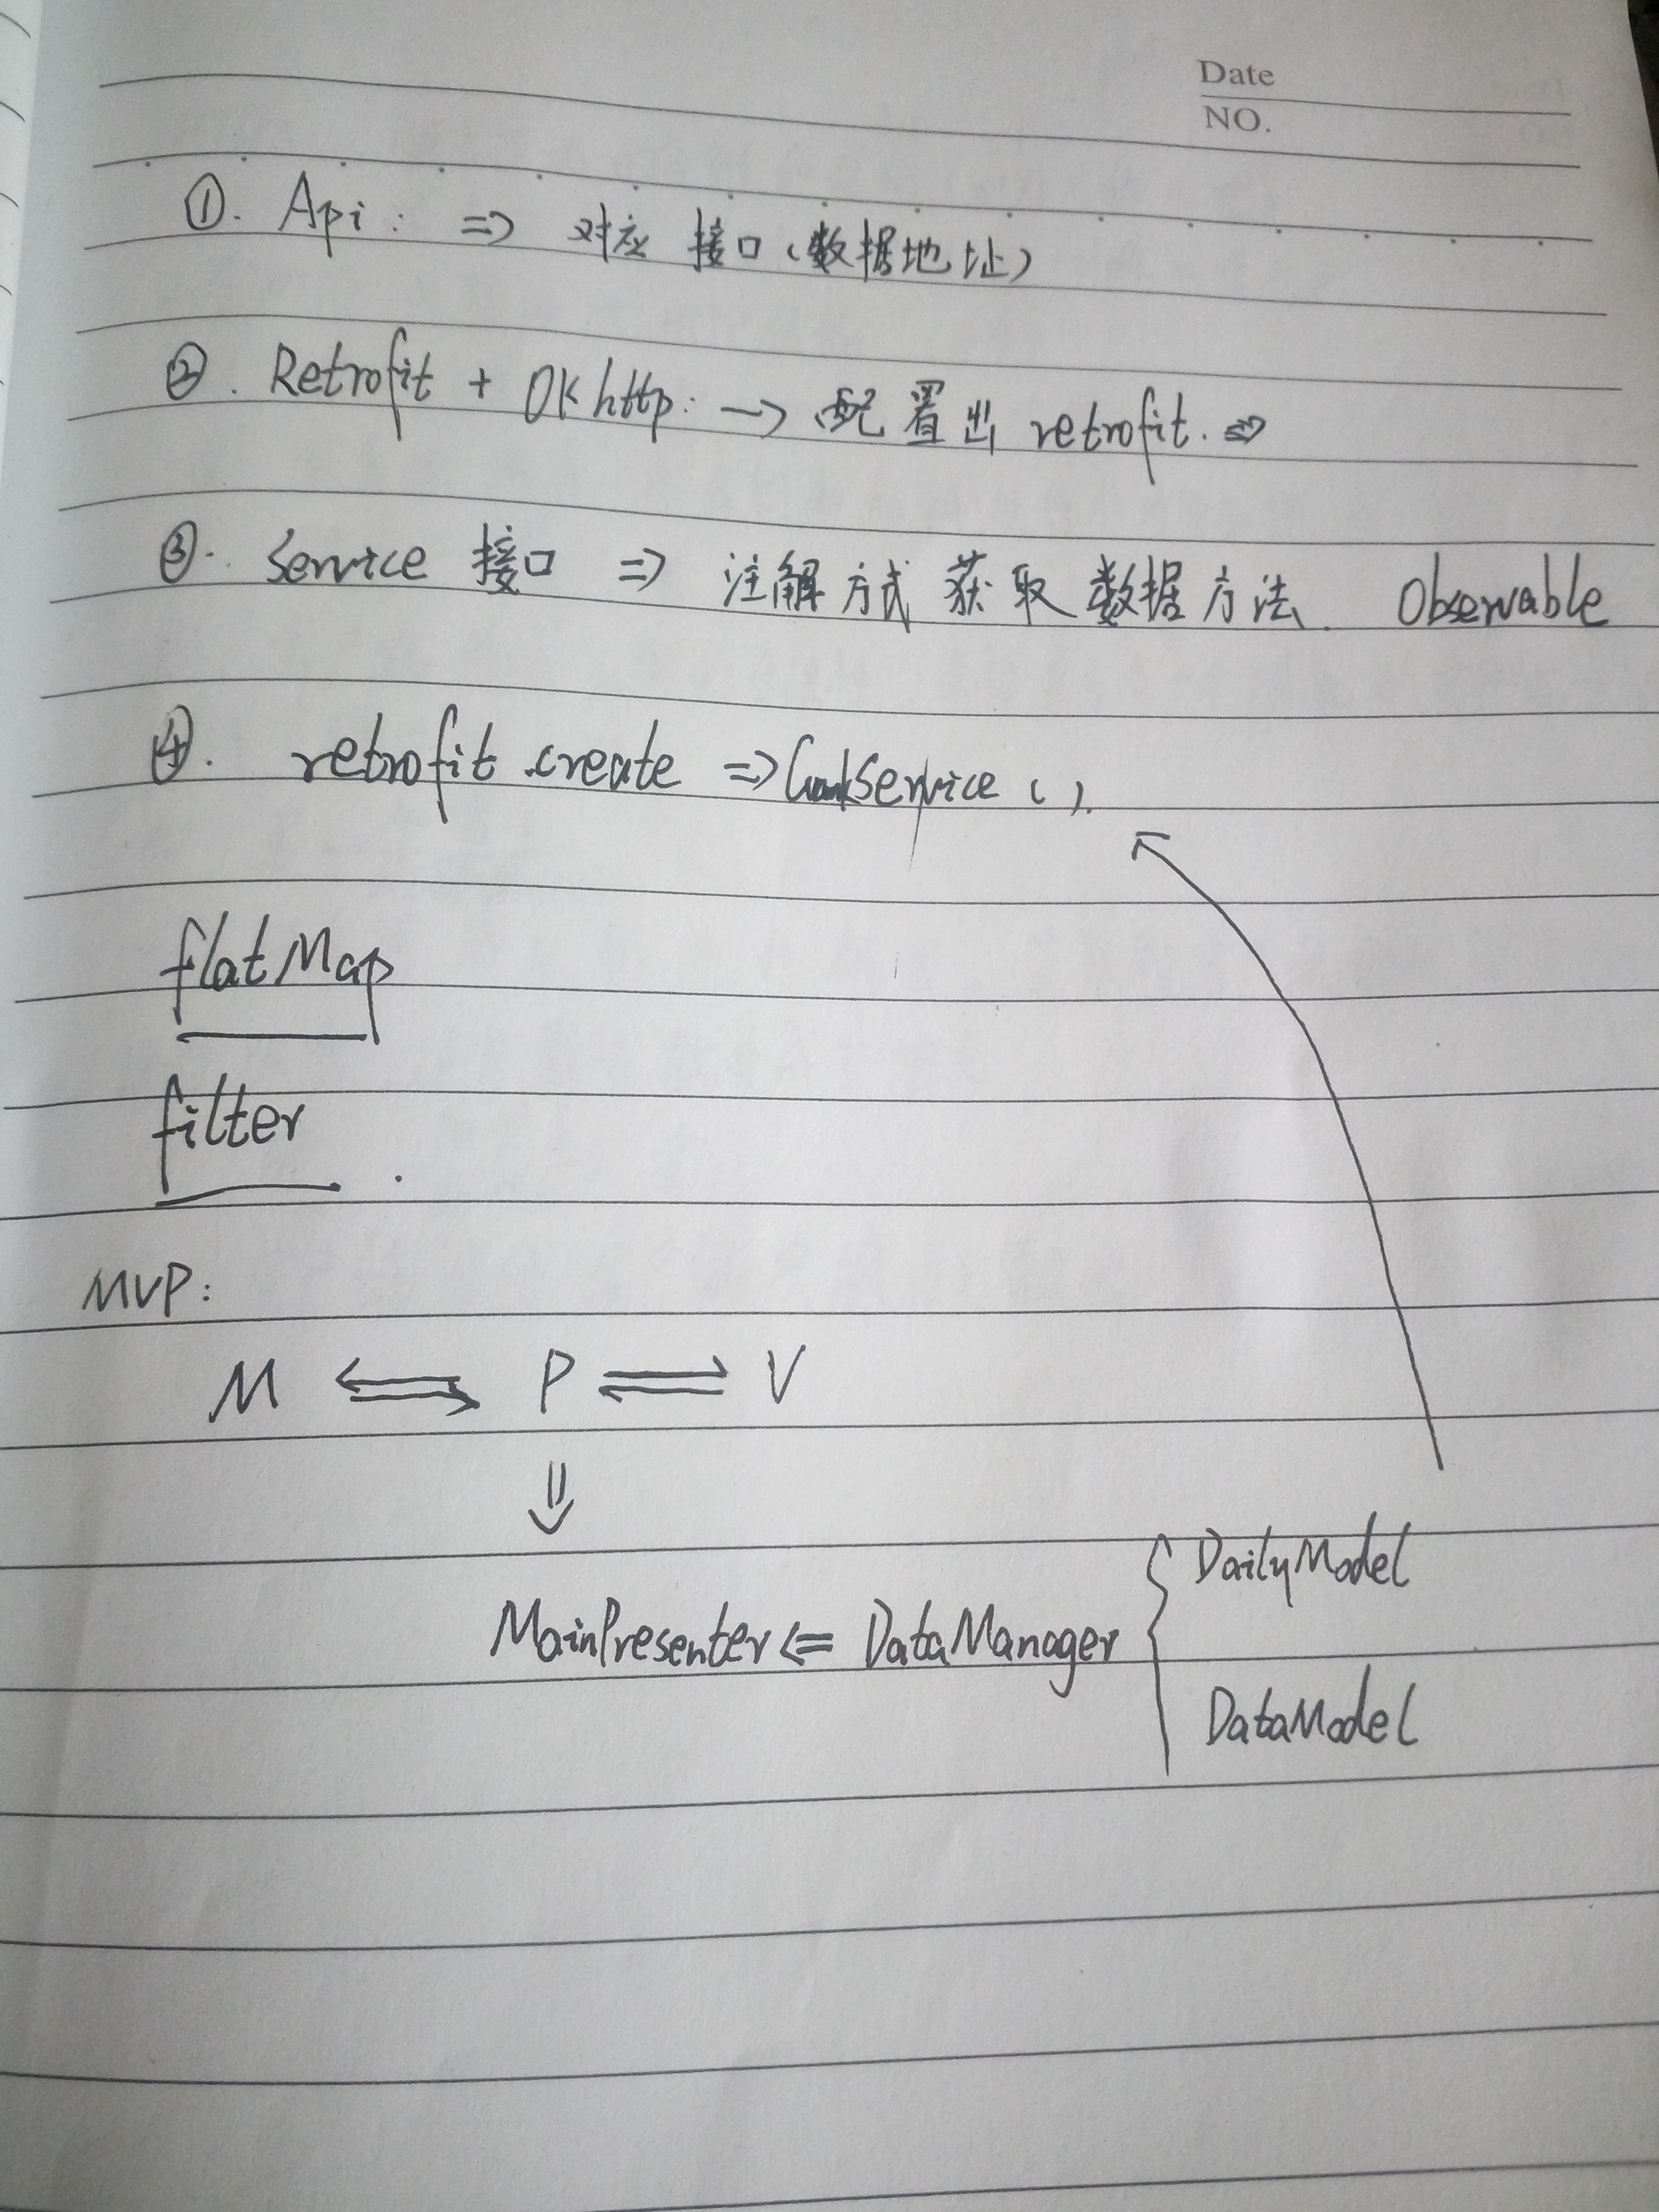 Date
NO.
①. Api: => 对应 接口(数据地址)
②. Retrofit + OKhttp: —> 配置出 retrofit. =>
③. Service 接口 => 注解方式 获取数据方法. Observable
④. retrofit.create => Service ( ).
flatMap
filter
MVP:
M P V
MainPresenter <= DataManager { DailyModel
DataModel